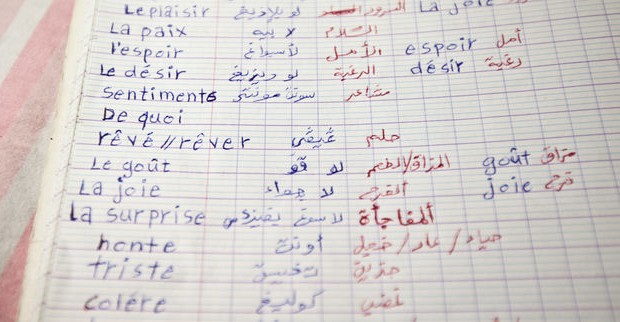 Le plaisir لو بلاديغ السرور La joie
La paix لا بيه السلام
l'espoir لأسبواغ الأمل espoir أمل
Le désir لو ديزيغ الرغبة désir رغبة
sentiments سونتمونتس مشاعر
De quoi
rêvé // rêver غيڤي حلم
Le goût لو قو المذاق/الطعم goût مذاق
La joie لا جواء الفرح joie فرح
La surprise المفاجأة
honte أونت حياء/عار/خجل
triste حزين
colère كوليغ غضب